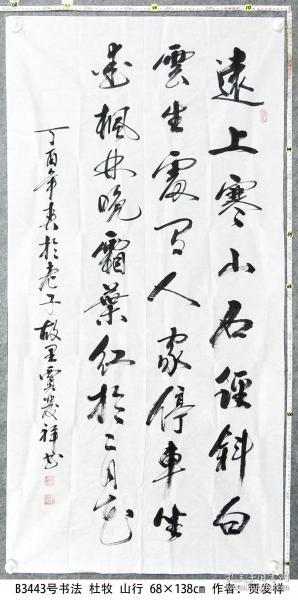 遠上寒山石徑斜白
雲生處有人家停車坐
愛楓林晚霜葉紅於二月花
丁酉年春於老子故里賈發祥书
B3443号书法 杜牧 山行 68×138cm 作者：贾发祥